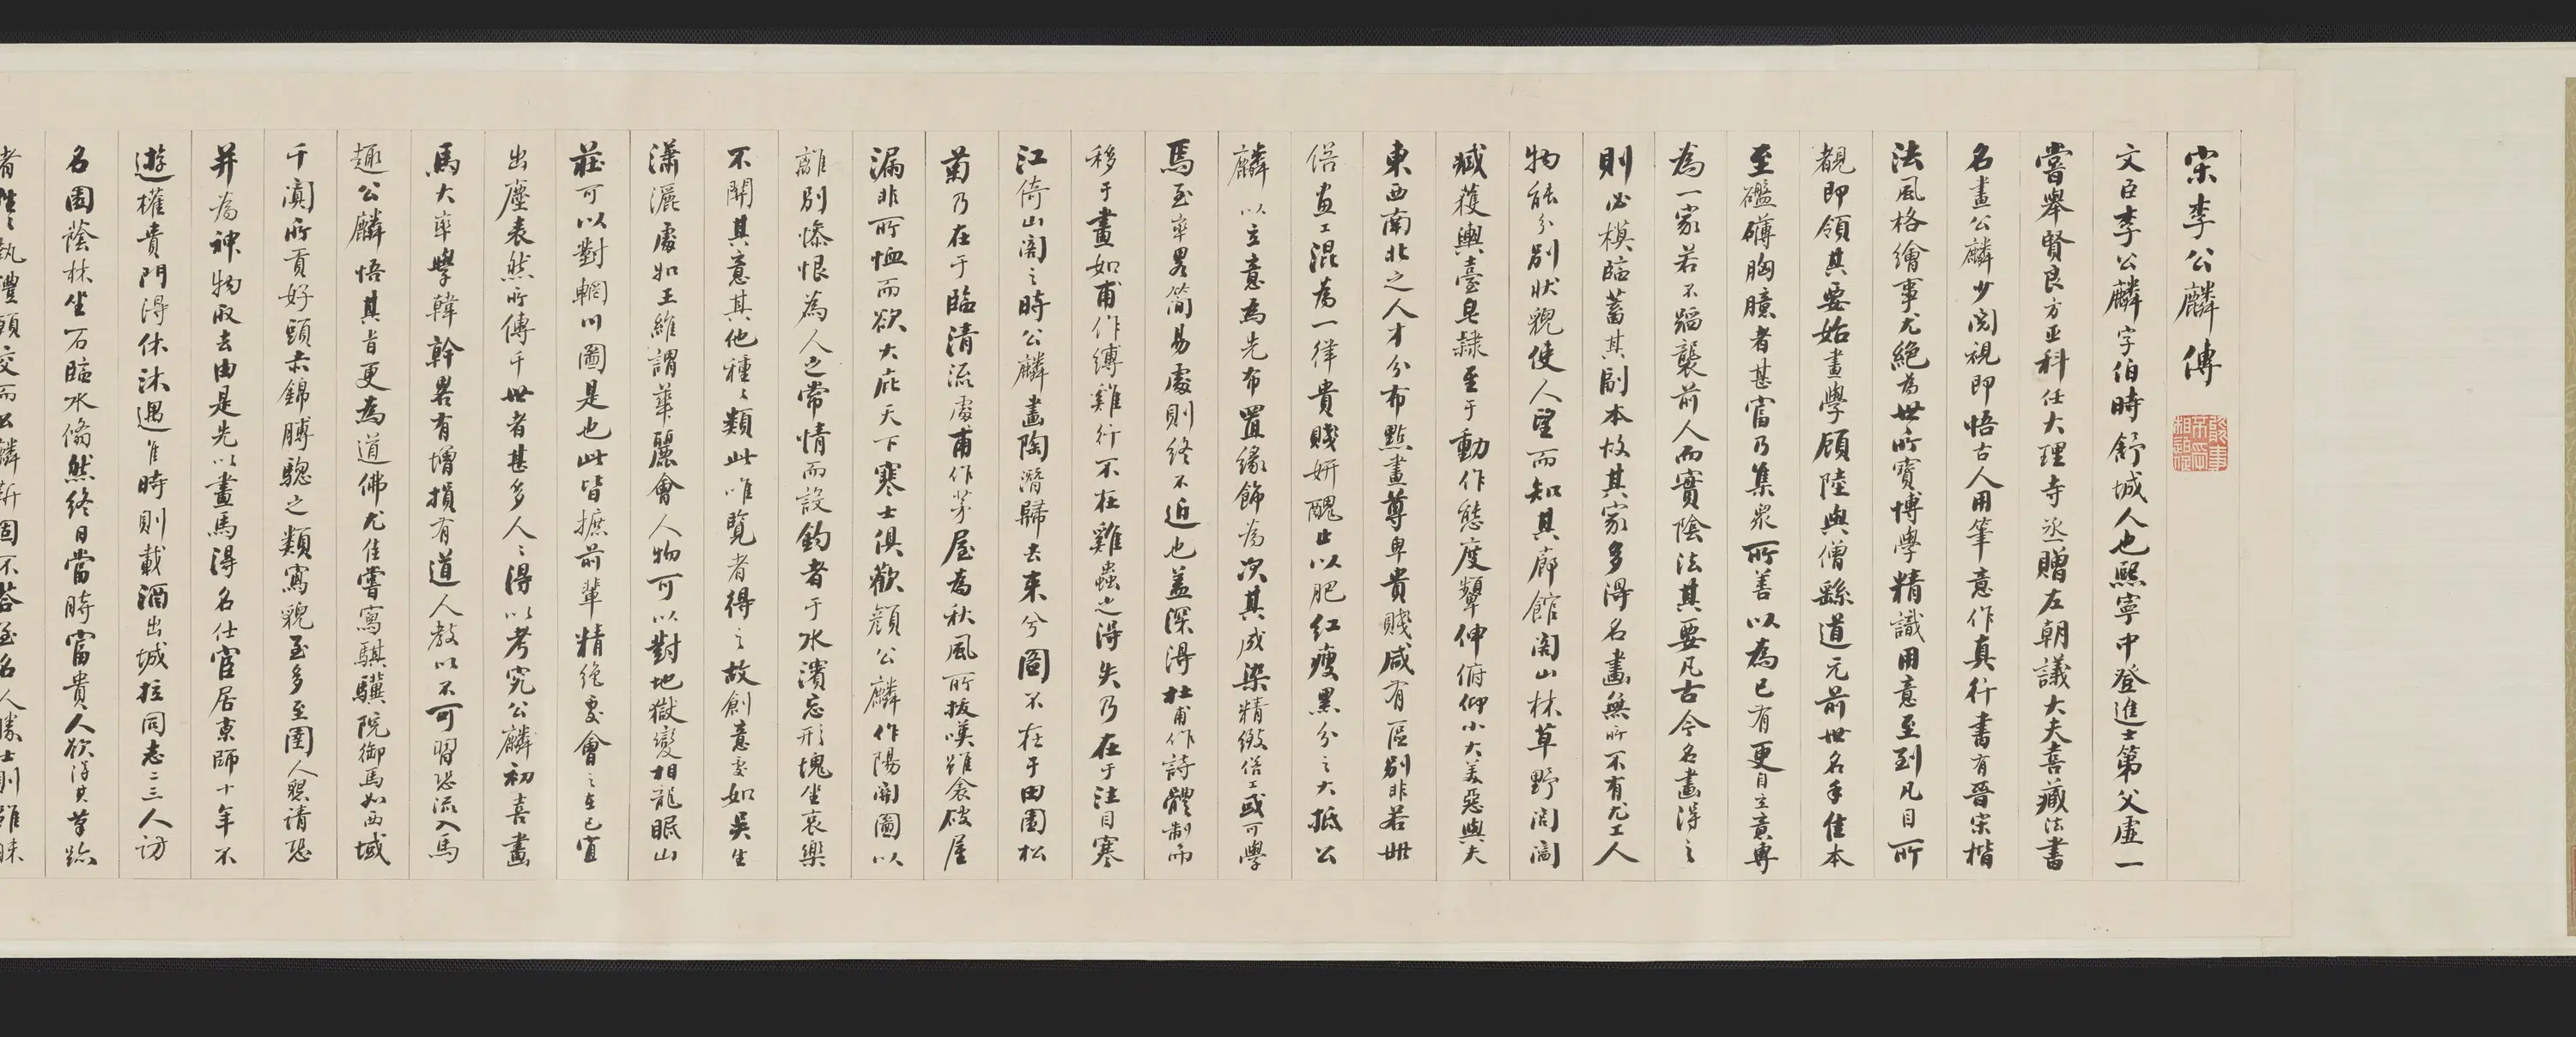 宋李公麟傳
文臣李公麟字伯時舒城人也熙寧中登進士第父虛一
嘗舉賢良方正科任大理寺丞贈左朝議大夫喜藏法書
名畫公麟少閱視即悟古人用筆意作真行書有晉宋楷
法風格繪事尤絕為世所寶博學精識用意至到凡目所
覩即領其要始畫學顧陸與僧繇道元前世名手佳本
至礧礴胸臆者甚富乃集衆所善以為己有更自立意專
為一家若不蹈襲前人而實陰法其要凡古今名畫得之
則必模臨蓄其副本故其家多得名畫無所不有尤工人
物能分別狀貌使人望而知其廊館閣山林草野閭閻
臧獲輿臺皂隸至于動作態度顰伸俯仰小大美惡與夫
東西南北之人才分布點畫尊卑貴賤咸有區別非若世
俗畫工混為一律貴賤妍醜止以肥紅瘦黑分之大抵公
麟以立意為先布置緣飾為次其成染精緻俗工或可學
焉至率畧簡易處則終不近也盖深得杜甫作詩體制而
移于畫如甫作縛雞行不在雞蟲之得失乃在于注目寒
江倚山閣之時公麟畫陶潛歸去來兮圖不在于田園松
菊乃在于臨清流處甫作茅屋為秋風所拔嘆雖衾破屋
漏非所恤而欲大庇天下寒士俱歡顏公麟作陽關圖以
離別慘恨為人之常情而設釣者于水濱忘形塊坐哀樂
不關其意其他種〻類此唯覽者得之故創意處如吳生
瀟灑處如王維謂華麗會人物可以對地獄變相龍眠山
莊可以對輞川圖是也此皆摭前輩精絕處會之在己宜
出塵表然所傳于世者甚多人〻得以考究公麟初喜畫
馬大率學韓幹畧有增損有道人教以不可習恐流入馬
趣公麟悟其旨更為道佛尤佳嘗寫騏驥院御馬如西域
于闐所貢好頭赤錦膊驄之類寫貌至多至圉人懇請恐
并為神物取去由是先以畫馬得名仕宦居京師十年不
遊權貴門得休沐遇佳時則載酒出城拉同志二三人訪
名園蔭林坐石臨水翛然終日當時富貴人欲得其筆跡
者往〻執禮願交而公麟靳固不答至名人勝士則雖昧